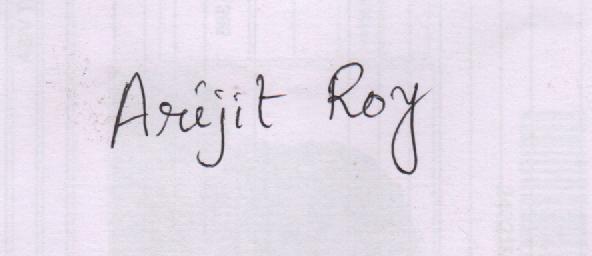 Arijit Roy